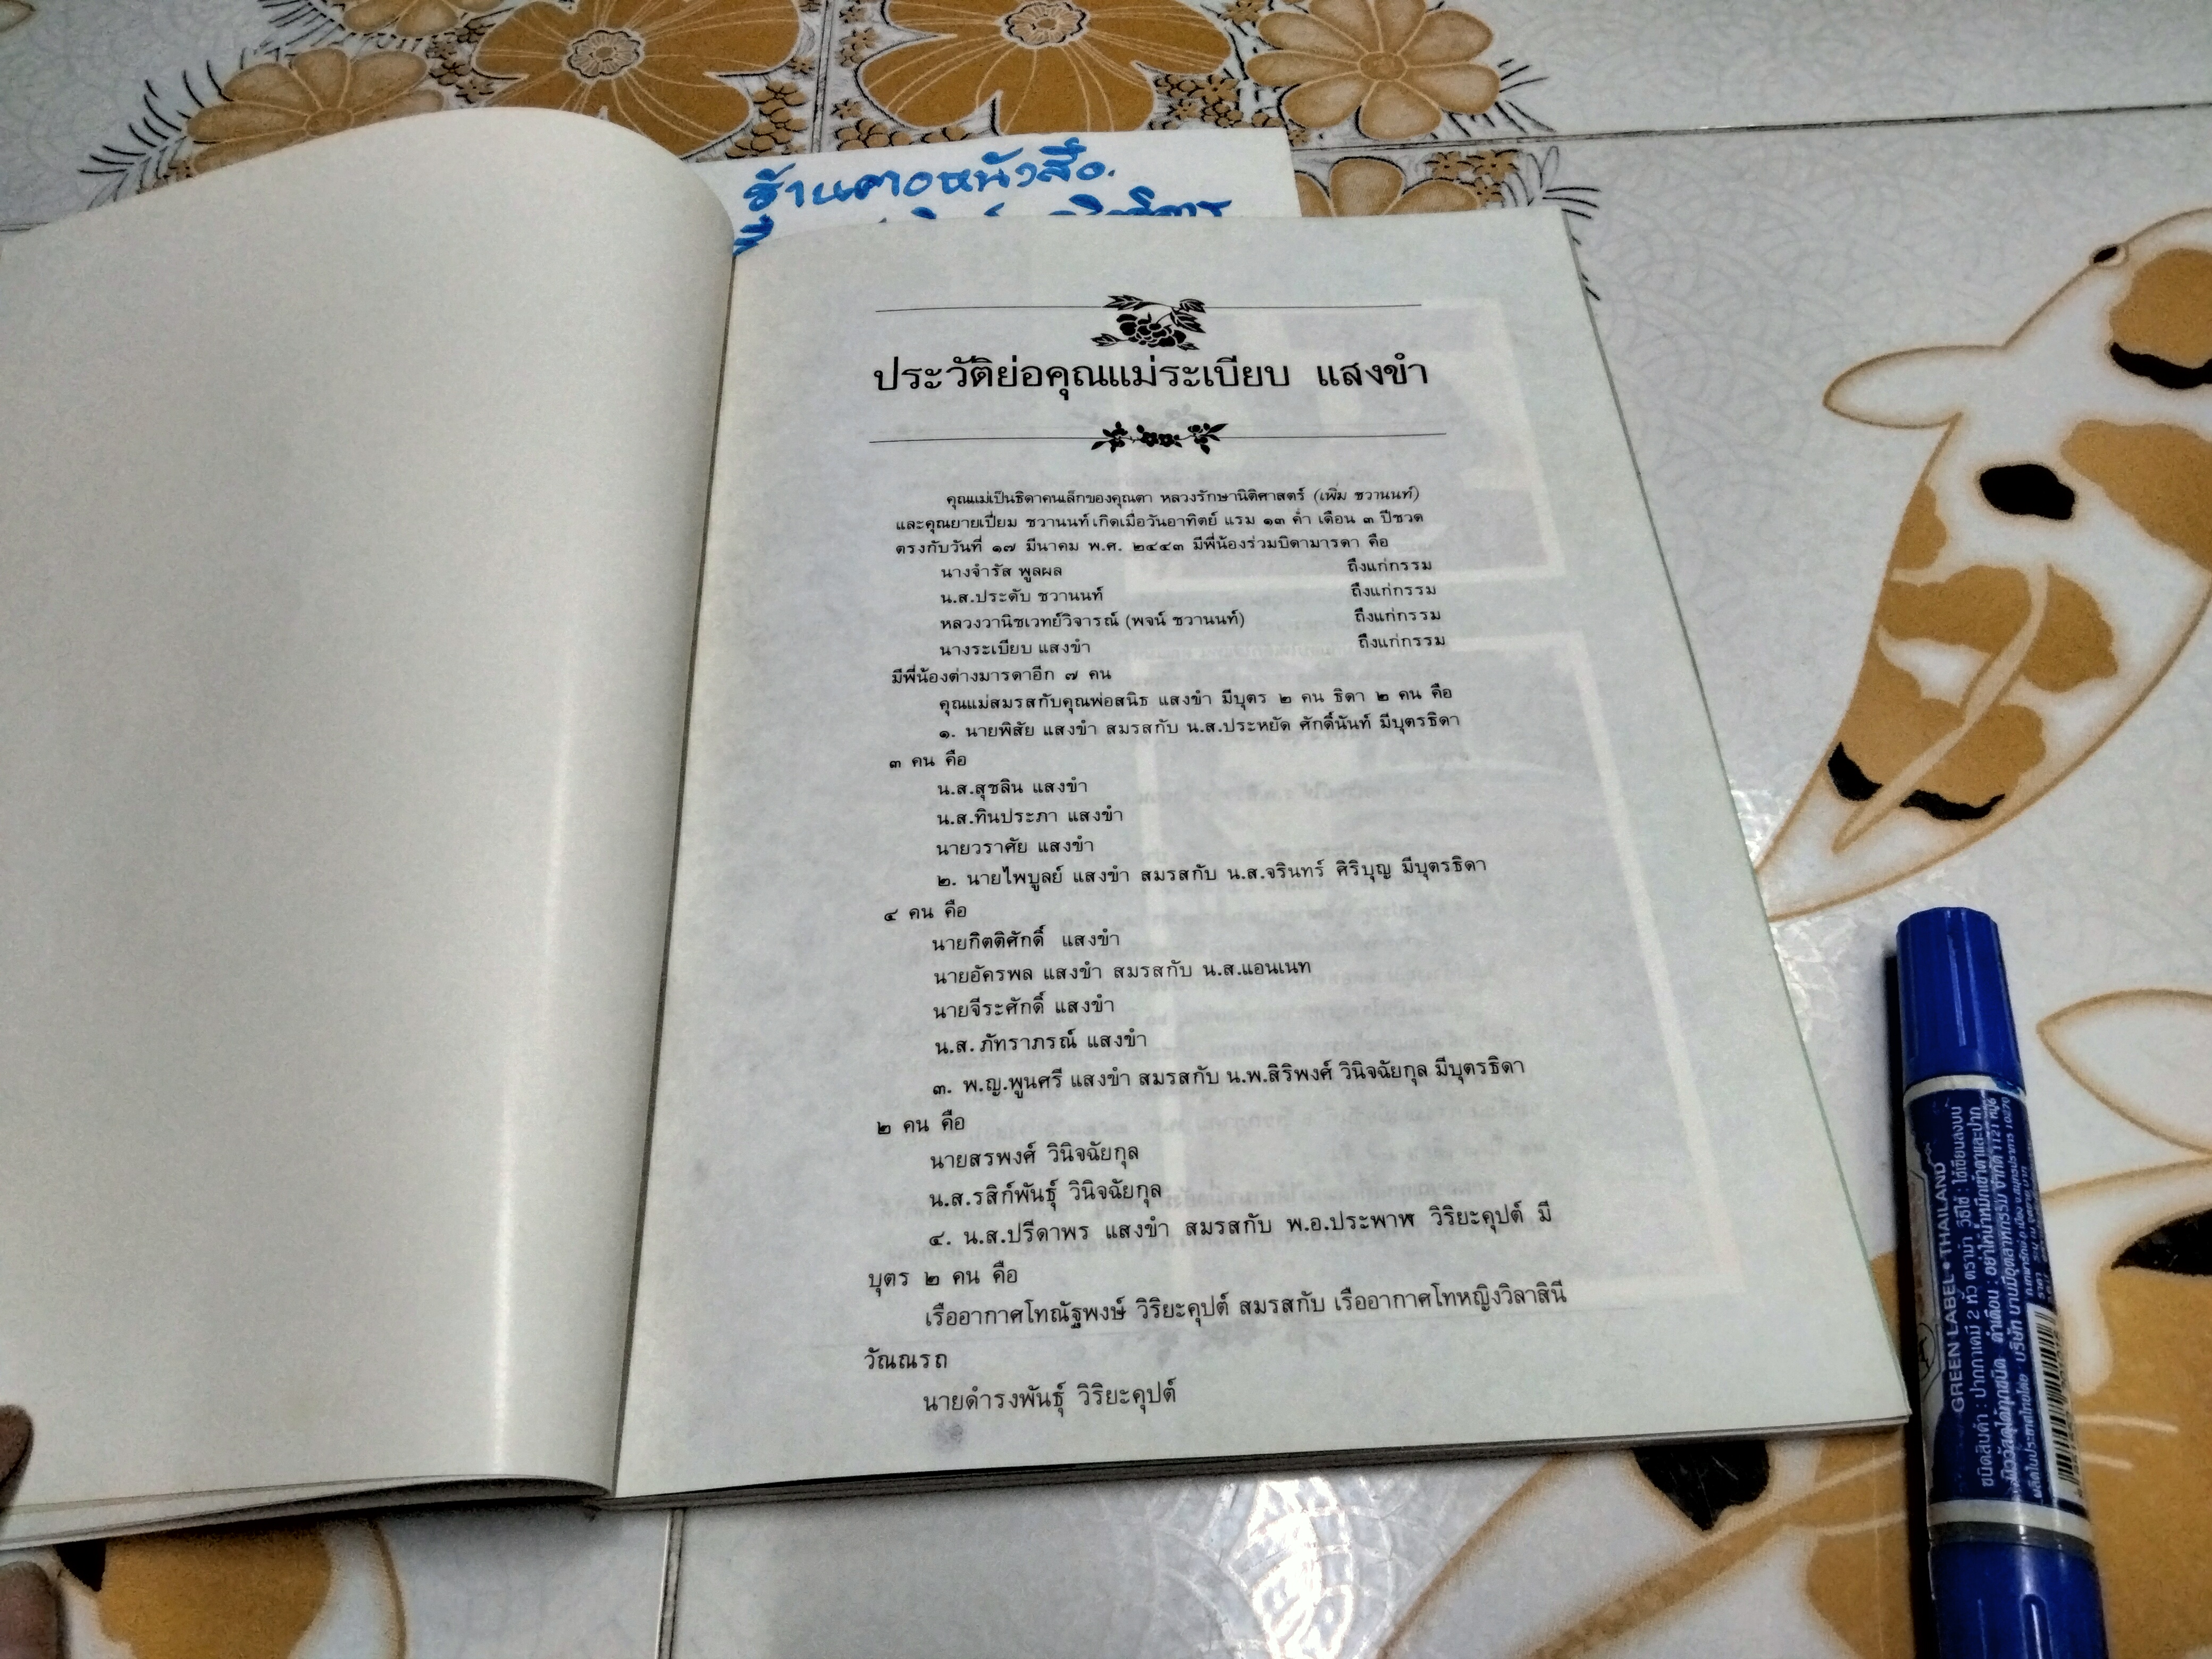 ร้านคอหนังสือ.
ประวัติย่อคุณแม่ระเบียบ แสงขำ
คุณแม่เป็นธิดาคนเล็กของคุณตา หลวงรักษานิติศาสตร์ (เพิ่ม ชวานนท์)
และคุณยายเปี่ยม ชวานนท์ เกิดเมื่อวันอาทิตย์ แรม ๑๓ ค่ำ เดือน ๓ ปีชวด
ตรงกับวันที่ ๑๗ มีนาคม พ.ศ. ๒๔๔๓ มีพี่น้องร่วมบิดามารดา คือ
นางจำรัส พูลผล ถึงแก่กรรม
น.ส.ประดับ ชวานนท์ ถึงแก่กรรม
หลวงวานิชเวทย์วิจารณ์ (พจน์ ชวานนท์) ถึงแก่กรรม
นางระเบียบ แสงขำ ถึงแก่กรรม
มีพี่น้องต่างมารดาอีก ๗ คน
คุณแม่สมรสกับคุณพ่อสนิธ แสงขำ มีบุตร ๒ คน ธิดา ๒ คน คือ
๑. นายพิสัย แสงขำ สมรสกับ น.ส.ประหยัด ศักดิ์นันท์ มีบุตรธิดา
๓ คน คือ
น.ส.สุชลิน แสงขำ
น.ส.ทินประภา แสงขำ
นายวราศัย แสงขำ
๒. นายไพบูลย์ แสงขำ สมรสกับ น.ส.จรินทร์ ศิริบุญ มีบุตรธิดา
๔ คน คือ
นายกิตติศักดิ์ แสงขำ
นายอัครพล แสงขำ สมรสกับ น.ส.แอนเนท
นายจีระศักดิ์ แสงขำ
น.ส.ภัทราภรณ์ แสงขำ
๓. พ.ญ.พูนศรี แสงขำ สมรสกับ น.พ.สิริพงศ์ วินิจฉัยกุล มีบุตรธิดา
๒ คน คือ
นายสรพงศ์ วินิจฉัยกุล
น.ส.รสิก์พันธุ์ วินิจฉัยกุล
๔. น.ส.ปรีดาพร แสงขำ สมรสกับ พ.อ.ประพาฬ วิริยะคุปต์ มี
บุตร ๒ คน คือ
เรืออากาศโทณัฐพงษ์ วิริยะคุปต์ สมรสกับ เรืออากาศโทหญิงวิลาสินี
วัณณรถ
นายดำรงพันธุ์ วิริยะคุปต์
GREEN LABEL • THAILAND
ชนิดสินค้า : ปากกาเคมี 2 หัว ตราม้า วิธีใช้ : ใช้เขียนลงบน
พื้นผิววัสดุได้ทุกชนิด คำเตือน : อย่าให้น้ำหมึกเข้าตาและปาก
ผลิตในประเทศไทยโดย บริษัท นานมีอุตสาหกรรม จำกัด 1121 หมู่6